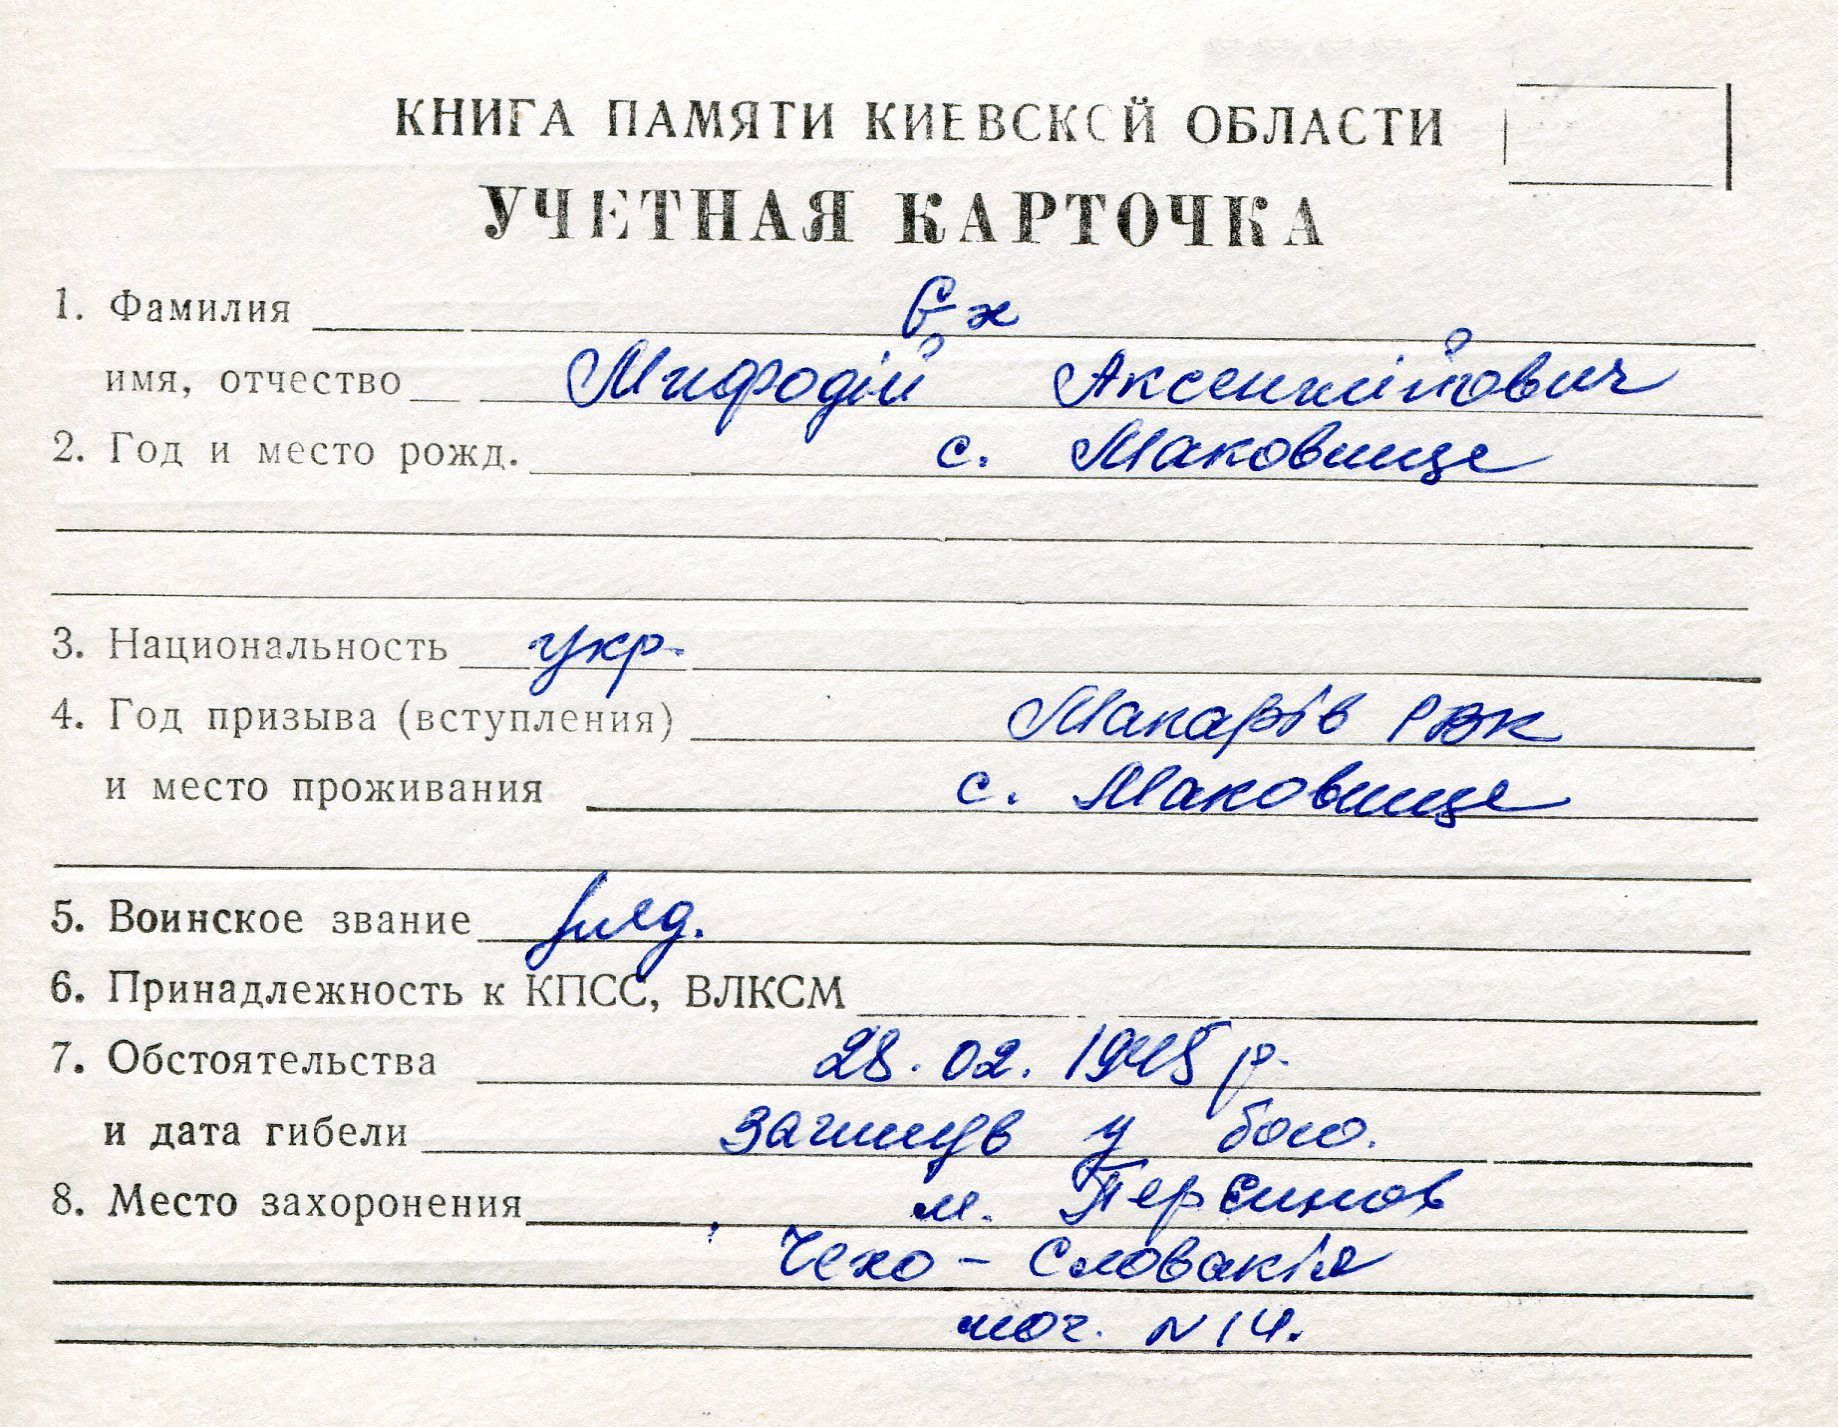 КНИГА ПАМЯТИ КИЕВСКОЙ ОБЛАСТИ
УЧЕТНАЯ КАРТОЧКА
1. Фамилия Єх
имя, отчество Мифодій Аксентійович
2. Год и место рожд. с. Маковище
3. Национальность укр.
4. Год призыва (вступления) Макарів РВК
и место проживания с. Маковище
5. Воинское звание ряд.
6. Принадлежность к КПСС, ВЛКСМ
7. Обстоятельства 28.02.1945 р.
и дата гибели загинув у бою.
8. Место захоронения м.
Чехо-Словакія
мог. N 14.